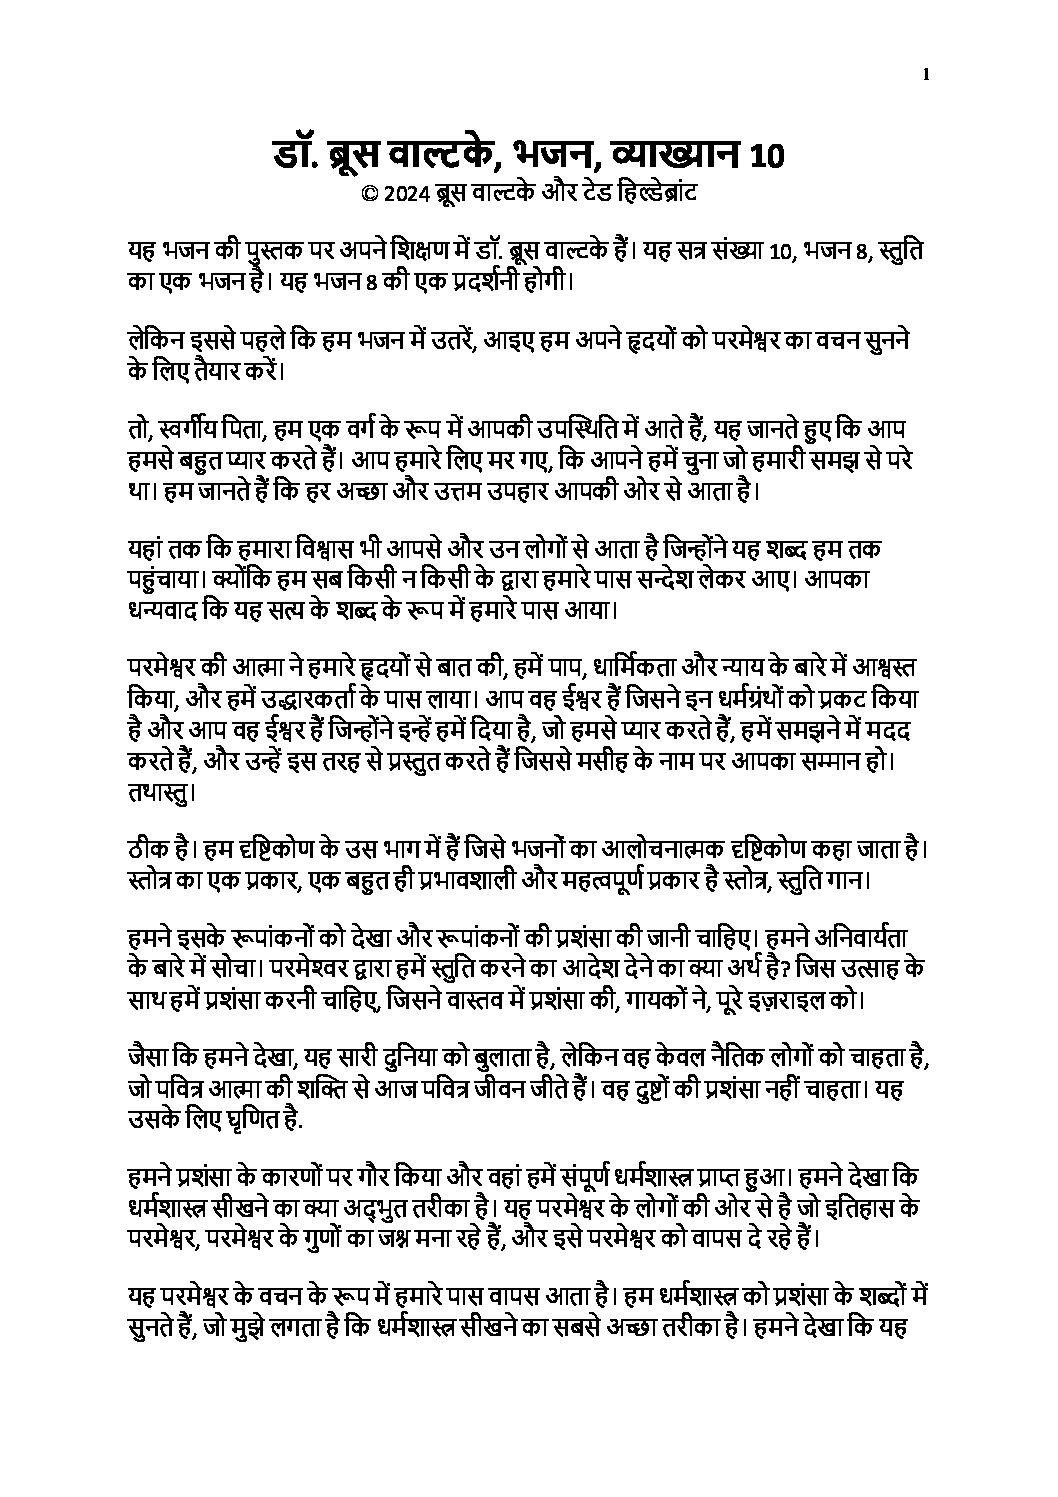 1
डॉ. ब्रूस वाल्टके, भजन, व्याख्यान 10
© 2024 ब्रूस वाल्टके और टेड हिल्डेब्रांट
यह भजन की पुस्तक पर अपने शिक्षण में डॉ. ब्रूस वाल्टके हैं। यह सत्र संख्या 10, भजन 8, स्तुति
का एक भजन है। यह भजन 8 की एक प्रदर्शनी होगी।
लेकिन इससे पहले कि हम भजन में उतरें, आइए हम अपने हृदयों को परमेश्वर का वचन सुनने
के लिए तैयार करें।
तो, स्वर्गीय पिता, हम एक वर्ग के रूप में आपकी उपस्थिति में आते हैं, यह जानते हुए कि आप
हमसे बहुत प्यार करते हैं। आप हमारे लिए मर गए, कि आपने हमें चुना जो हमारी समझ से परे
था। हम जानते हैं कि हर अच्छा और उत्तम उपहार आपकी ओर से आता है।
यहां तक कि हमारा विश्वास भी आपसे और उन लोगों से आता है जिन्होंने यह शब्द हम तक
पहुंचाया। क्योंकि हम सब किसी न किसी के द्वारा हमारे पास सन्देश लेकर आए। आपका
धन्यवाद कि यह सत्य के शब्द के रूप में हमारे पास आया।
परमेश्वर की आत्मा ने हमारे हृदयों से बात की, हमें पाप, धार्मिकता और न्याय के बारे में आश्वस्त
किया, और हमें उद्धारकर्ता के पास लाया। आप वह ईश्वर हैं जिसने इन धर्मग्रंथों को प्रकट किया
है और आप वह ईश्वर हैं जिन्होंने इन्हें हमें दिया है, जो हमसे प्यार करते हैं, हमें समझने में मदद
करते हैं, और उन्हें इस तरह से प्रस्तुत करते हैं जिससे मसीह के नाम पर आपका सम्मान हो।
तथास्तु।
ठीक है। हम दृष्टिकोण के उस भाग में हैं जिसे भजनों का आलोचनात्मक दृष्टिकोण कहा जाता है।
स्तोत्र का एक प्रकार, एक बहुत ही प्रभावशाली और महत्वपूर्ण प्रकार है स्तोत्र, स्तुति गान।
हमने इसके रूपांकनों को देखा और रूपांकनों की प्रशंसा की जानी चाहिए। हमने अनिवार्यता
के बारे में सोचा। परमेश्वर द्वारा हमें स्तुति करने का आदेश देने का क्या अर्थ है? जिस उत्साह के
साथ हमें प्रशंसा करनी चाहिए, जिसने वास्तव में प्रशंसा की, गायकों ने, पूरे इज़राइल को।
जैसा कि हमने देखा, यह सारी दुनिया को बुलाता है, लेकिन वह केवल नैतिक लोगों को चाहता है,
जो पवित्र आत्मा की शक्ति से आज पवित्र जीवन जीते हैं। वह दुष्टों की प्रशंसा नहीं चाहता। यह
उसके लिए घृणित है.
हमने प्रशंसा के कारणों पर गौर किया और वहां हमें संपूर्ण धर्मशास्त्र प्राप्त हुआ। हमने देखा कि
धर्मशास्त्र सीखने का क्या अद्भुत तरीका है। यह परमेश्वर के लोगों की ओर से है जो इतिहास के
परमेश्वर, परमेश्वर के गुणों का जश्न मना रहे हैं, और इसे परमेश्वर को वापस दे रहे हैं।
यह परमेश्वर के वचन के रूप में हमारे पास वापस आता है। हम धर्मशास्त्र को प्रशंसा के शब्दों में
सुनते हैं, जो मुझे लगता है कि धर्मशास्त्र सीखने का सबसे अच्छा तरीका है। हमने देखा कि यह